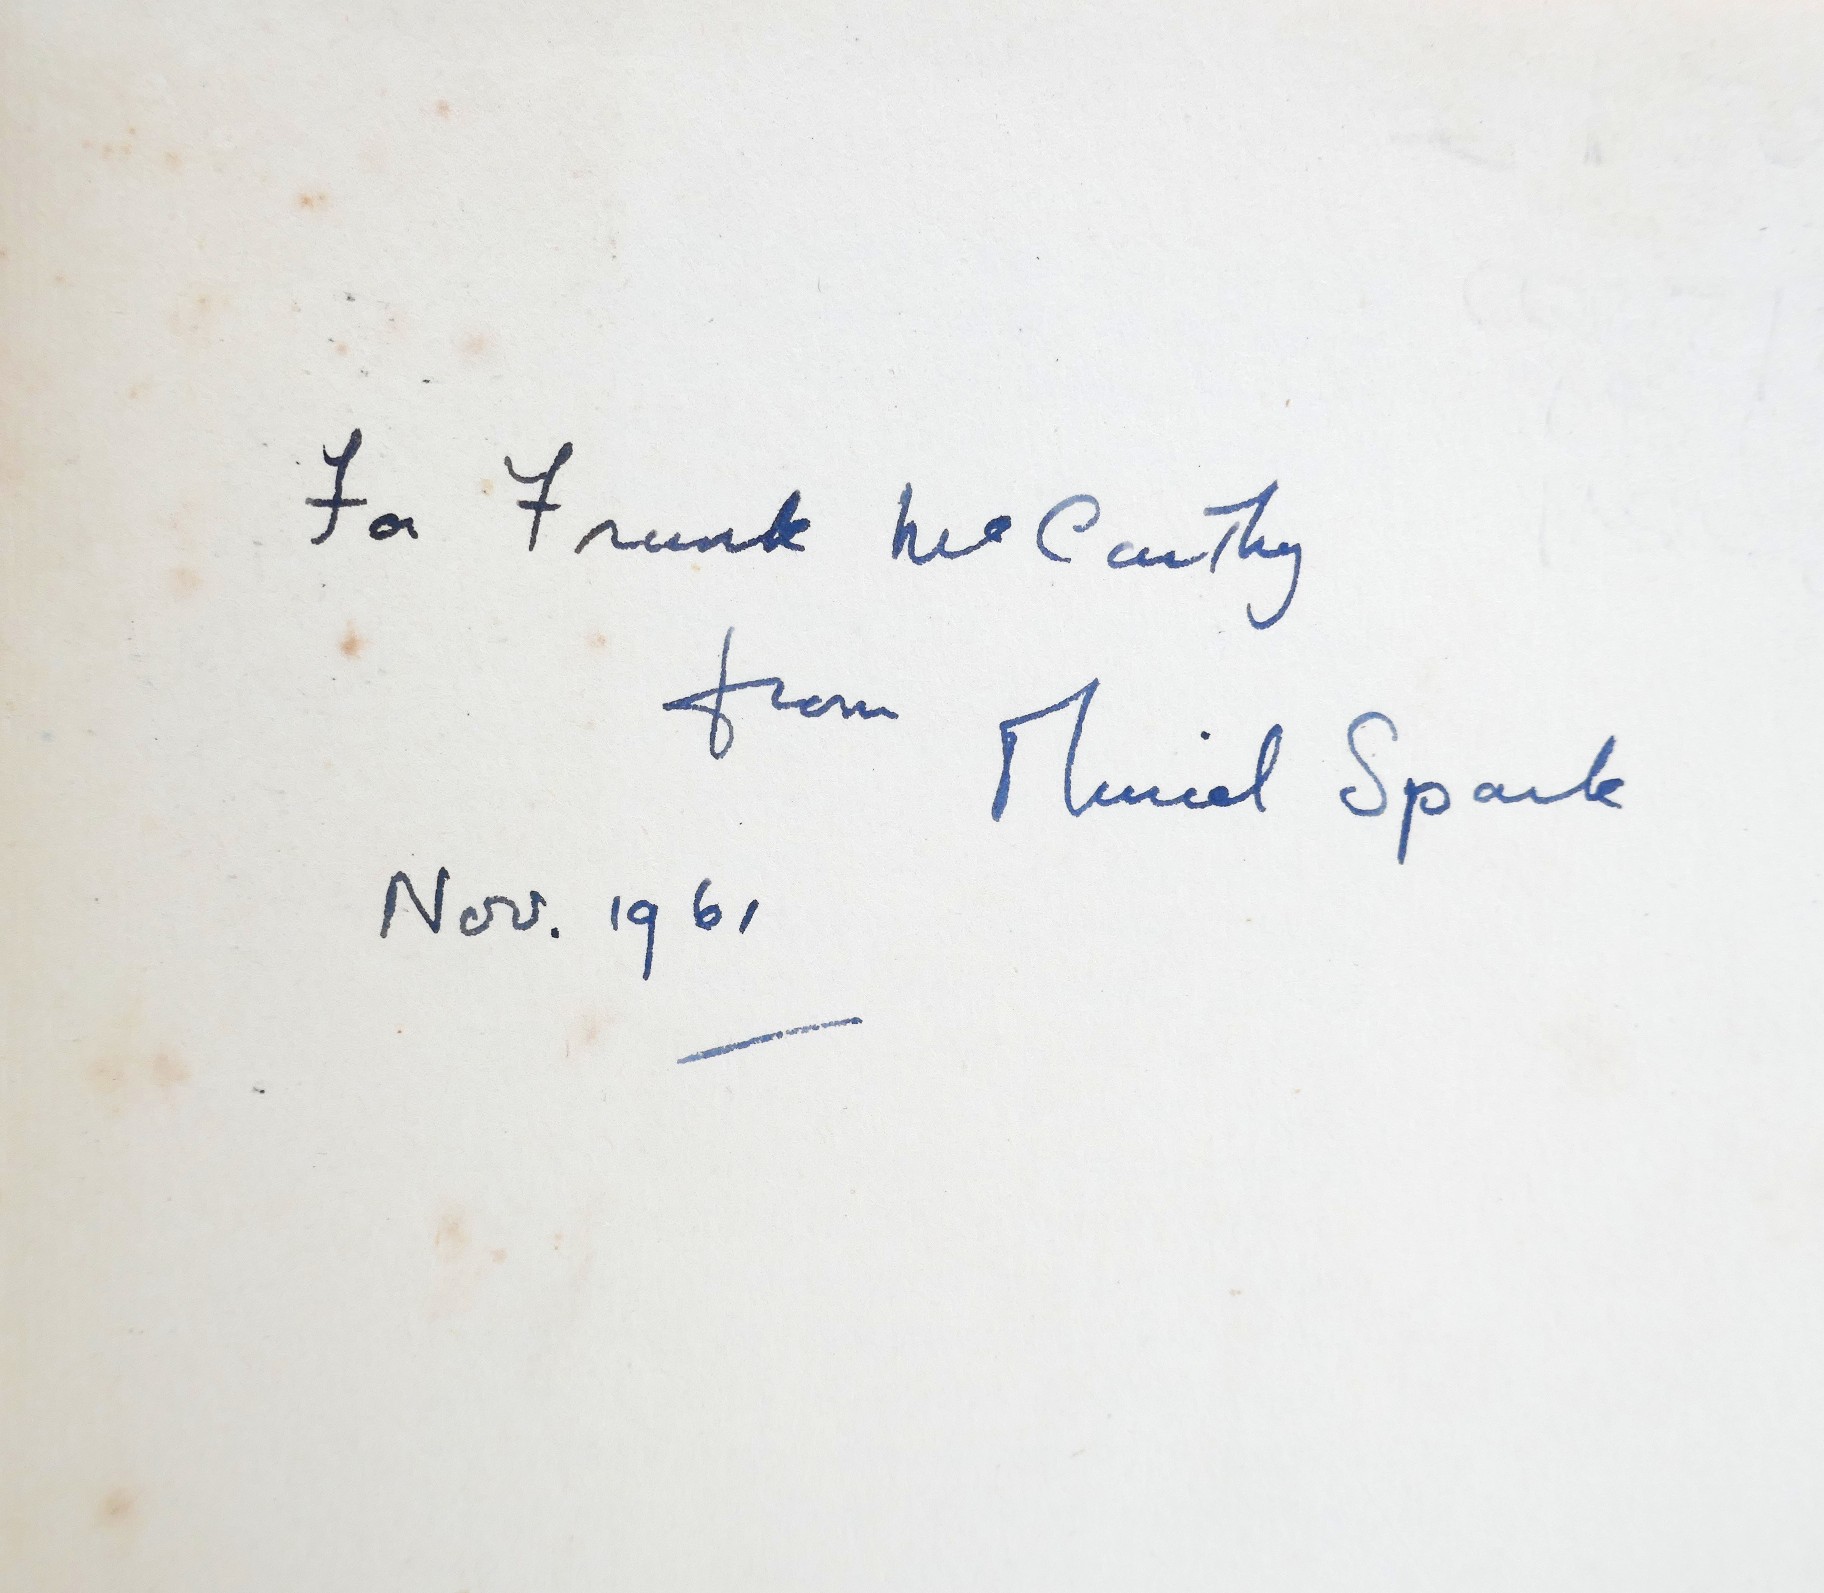 For Frank McCarthy
from Muriel Spark
Nov. 1961